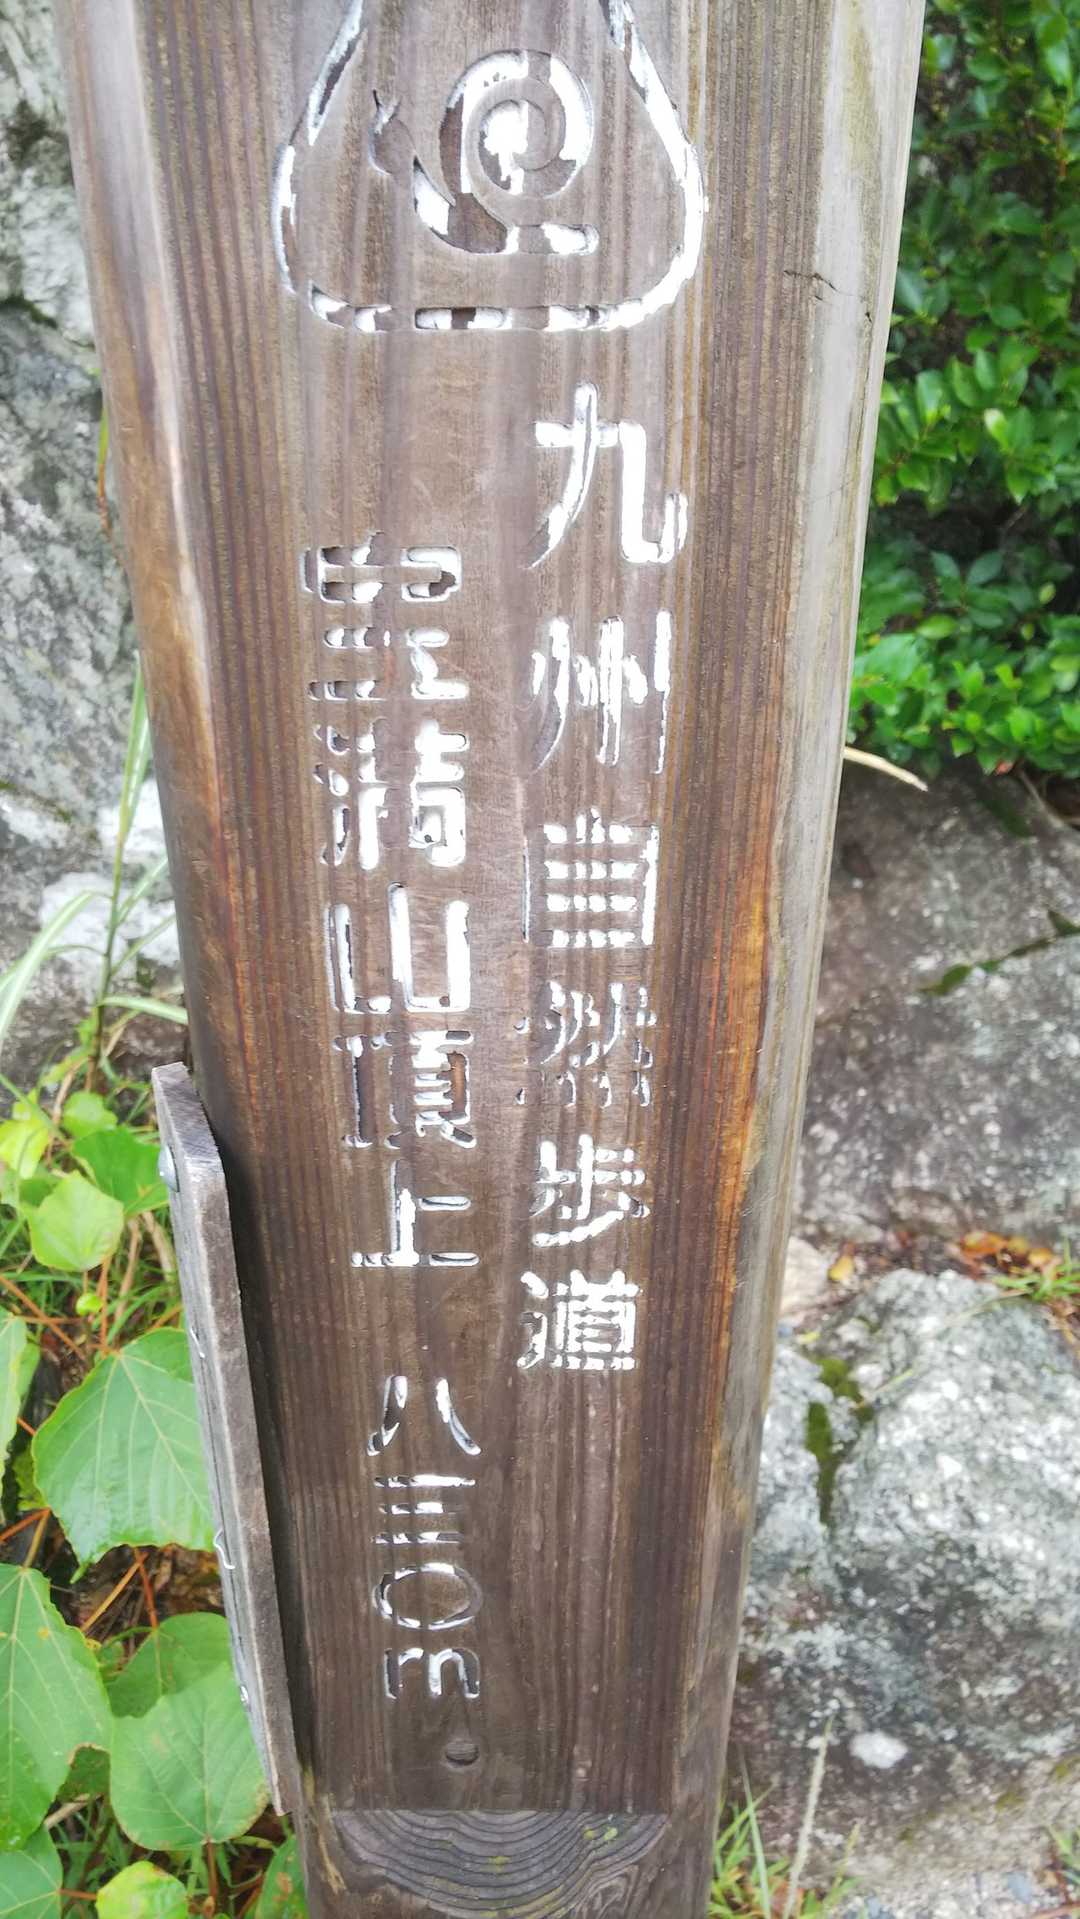 九州自然歩道
宝満山頂上 八三〇m